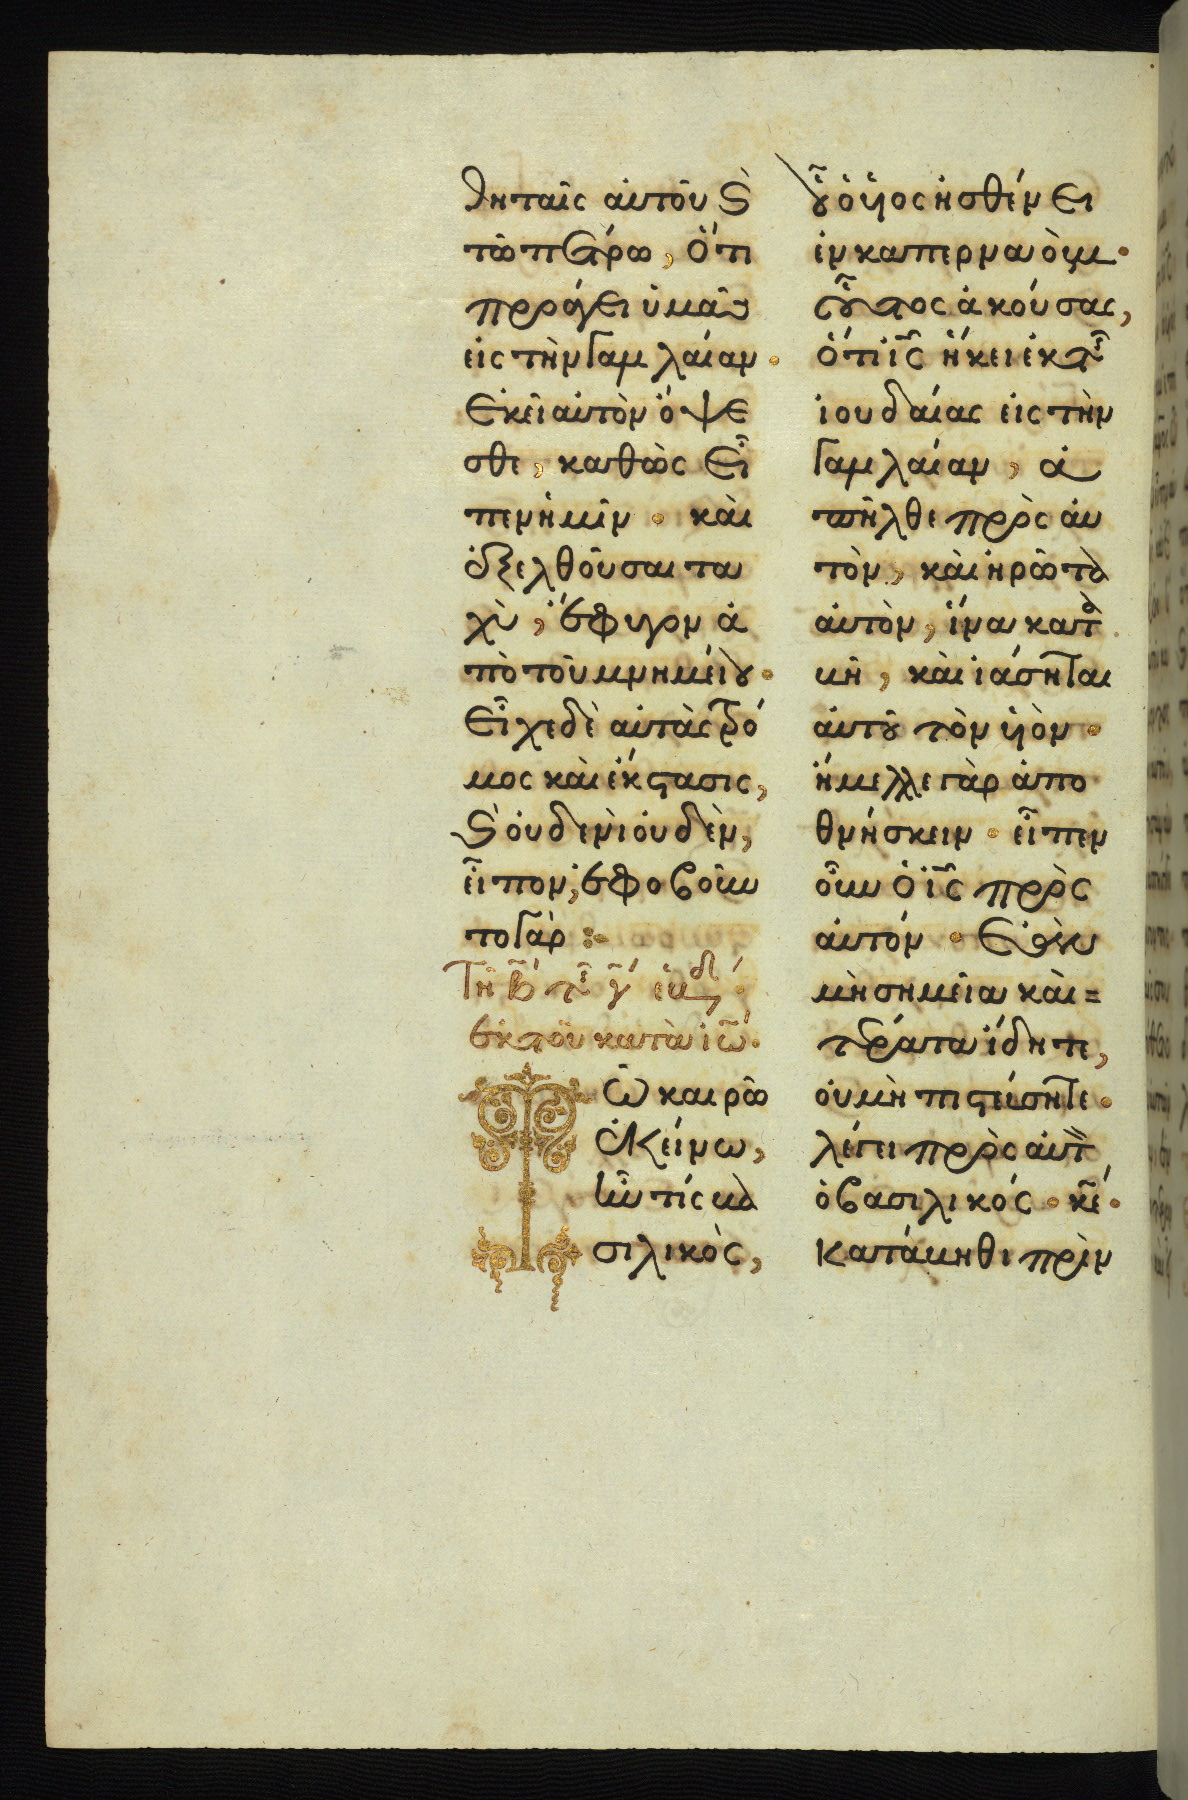 θηταῖς αὐτοῦ ϗ
τῶ πέτρω, ὅτι
προάγει ὑμᾶς
εἰς τὴν Γαλιλαίαν·
ἐκεῖ αὐτὸν ὄψε
σθε, καθὼς εἶ
πεν ἡμῖν· καὶ
ἐξελθοῦσαι τα
χὺ, ἔφυγον ἀ
πὸ τοῦ μνημείου·
εἶχε δὲ αὐτὰς τρό
μος καὶ ἔκστασις,
ϗ οὐδενὶ οὐδὲν,
εἶπον, ἐφοβοῦν
το γάρ:
Τῆ β´ τῆς γ´ ἑβδ´
ἐκ τοῦ κατὰ ἰω·
Τῶ καιρῶ
ἐκείνω,
ἦν τίς βα
σιλικὸς,
οὗ ὁ υἱὸς ἠσθένει
ἐν καπερναούμ·
οὗτος ἀκούσας,
ὅτι ἰς ἥκει ἐκ τῆς
ἰουδαίας εἰς τὴν
Γαλιλαίαν, ἀ
πῆλθε πρὸς αὐ
τὸν, καὶ ἠρώτα
αὐτὸν, ἵνα κατα
βῆ, καὶ ἰάσηται
αὐτοῦ τὸν υἱὸν·
ἤμελλε γὰρ ἀπο
θνήσκειν· εἶπεν
οὖν ὁ ἰς πρὸς
αὐτόν· ἐὰν
μὴ σημεῖα καὶ=
τέρατα ἴδητε,
οὐ μὴ πιστεύσητε·
λέγει πρὸς αὐτὸν
ὁ βασιλικός· κε·
κατάβηθι πρὶν